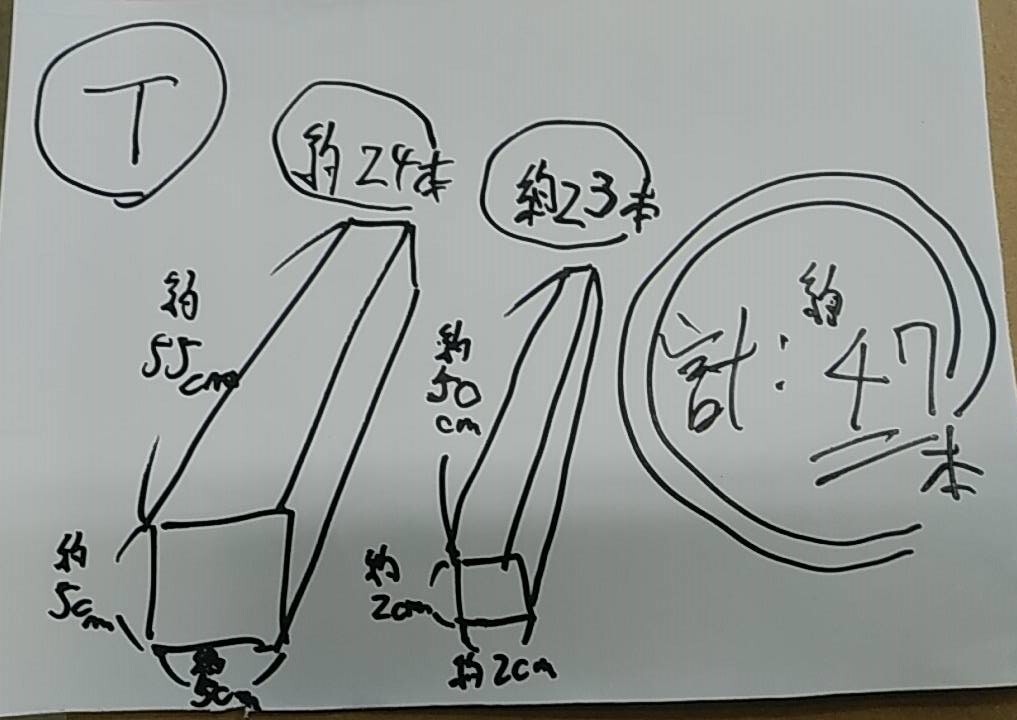 T
約24本
約23本
約
55cm
約
50
cm
約
計:47本
約
5cm
約
5cm
約
2cm
約2cm